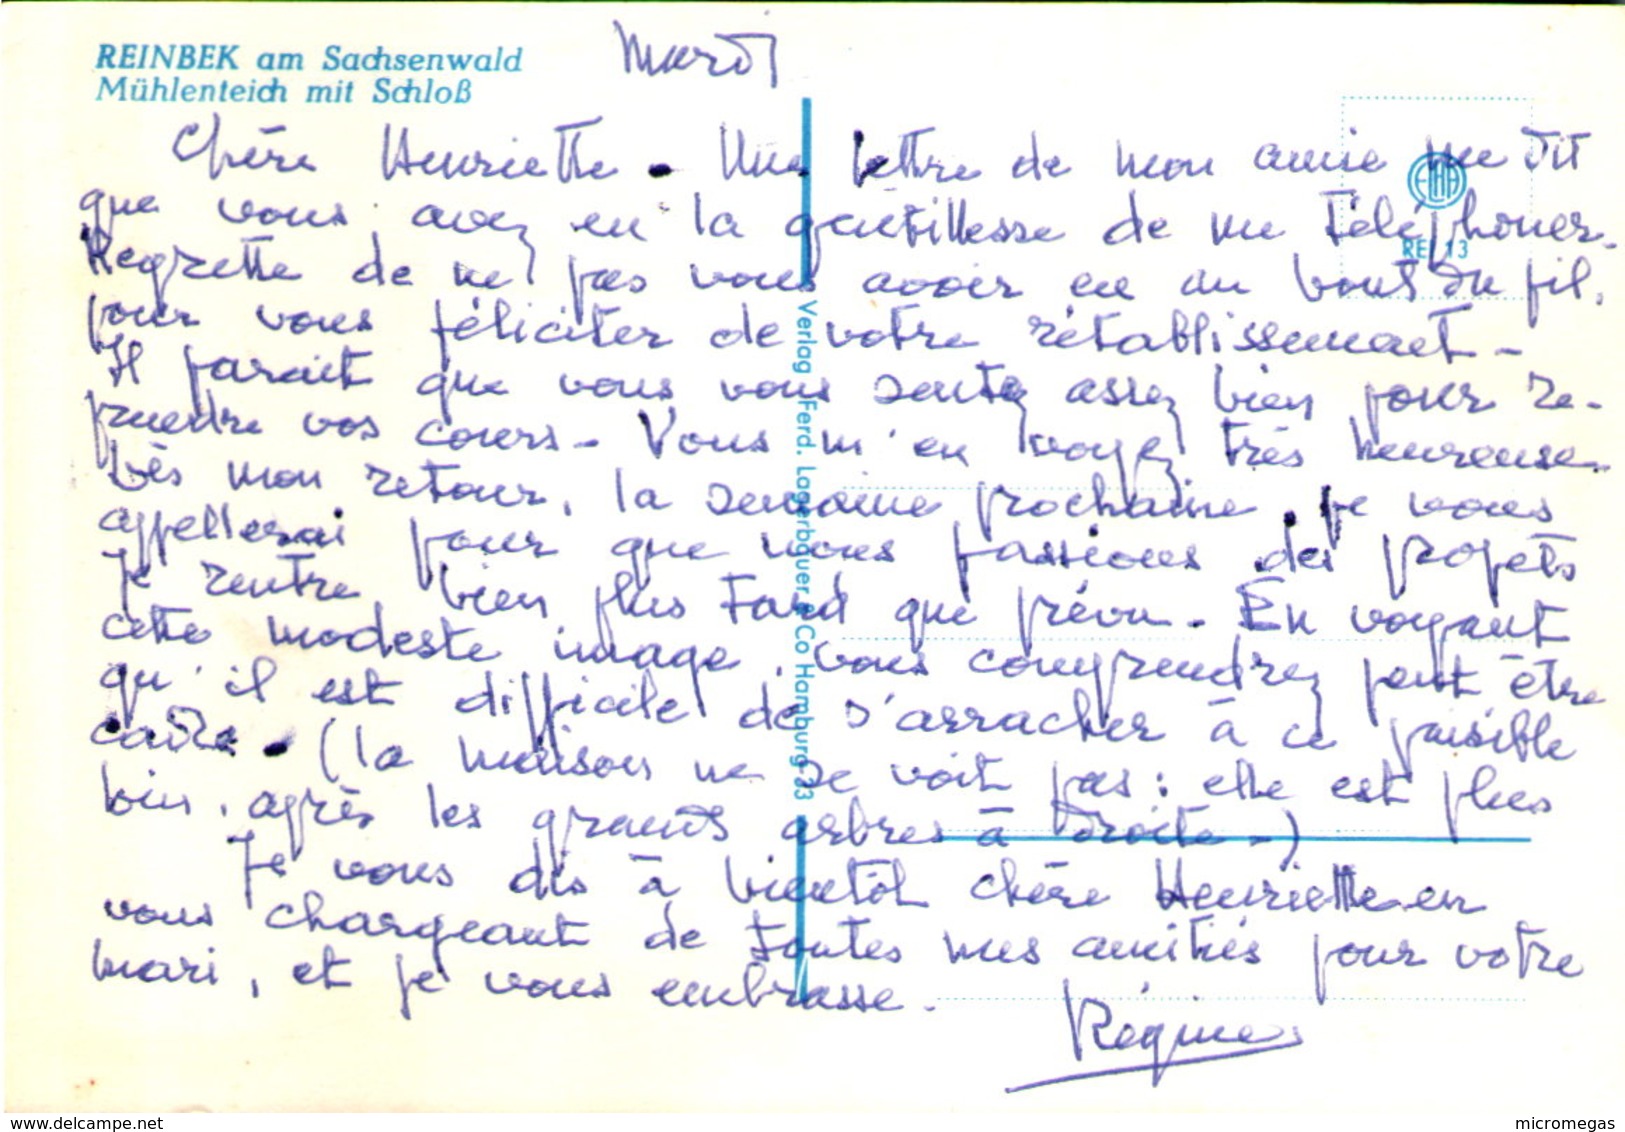 REINBEK am Sachsenwald
Mühlenteich mit Schloß
Mardi
Chère Henriette. Une lettre de mon amie me dit
que vous avez eu la gentillesse de me téléphoner.
Regrette de ne pas vous avoir eu au bout du fil,
pour vous féliciter de votre rétablissement -
Il parait que vous vous sentez assez bien pour re-
prendre vos cours - Vous m'en voyez très heureuse.
Dès mon retour, la semaine prochaine, je vous
appellerai pour que nous fassions des projets
Je rentre bien plus tard que prévu. En voyant
cette modeste image, vous comprendrez peut être
qu'il est difficile de s'arracher à ce paisible
cadre. (la maison ne se voit pas : elle est plus
loin, après les grands arbres à droite -)
Je vous dis à bientôt chère Henriette en
vous chargeant de toutes mes amitiés pour votre
mari, et je vous embrasse.
Régine
Verlag Ferd. Lagerbauer & Co Hamburg 33
EKHA
REI 13
www.delcampe.net
micromegas